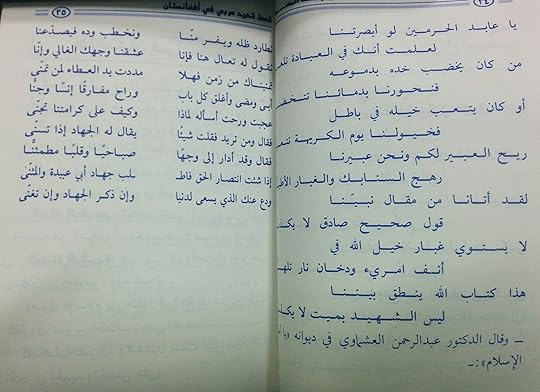 ٣٤
يا عابد الحرمين لو أبصرتنا
لعلمت أنك في العبادة
من كان يخضب خده بدموعه
فنحورنا بدمائنا
أو كان يتعب خيله في باطل
فخيولنا يوم الكريهة
ريح العبير لكم ونحن عبيرنا
رهج السنابك والغبار
لقد أتانا من مقال نبيّنا
قول صحيح صادق لا
لا يستوي غبار خيل الله في
أنف امريء ودخان نار
هذا كتاب الله ينطق بيننا
ليس الشهيد بميت لا
ــ وقال الدكتور عبدالرحمن العشماوي في ديوانه
الإسلام»:ـ
قصة شهيد عربي في أفغانستان
٣٥
نطارد ظله ويفر منّا ونخطب وده فيصدّعنا
نقول له تعال هنا فإنا عشقنا وجهك الغالي وإنّا
تمنيناك من زمن فهلا مددت يد العطاء لمن تمنّى
أبى ومضى وأغلق كل باب وراح مفارقًا إنسًا وجنًّا
عجبت ورحت أسأله لماذا وكيف على كرامتنا تجنّى
فقال ومن تريد فقلت شيئًا يقال له الجهاد إذا تسنّى
فقال وقد أدار إلى وجهًا صباحيًا وقلبًا مطمئنًّا
إذا شئت انتصار الحق جهاد أبي عبيدة والمثنّى
ودع عنك الذي يسعى لدنيا وإن ذكر الجهاد وإن تغنّى